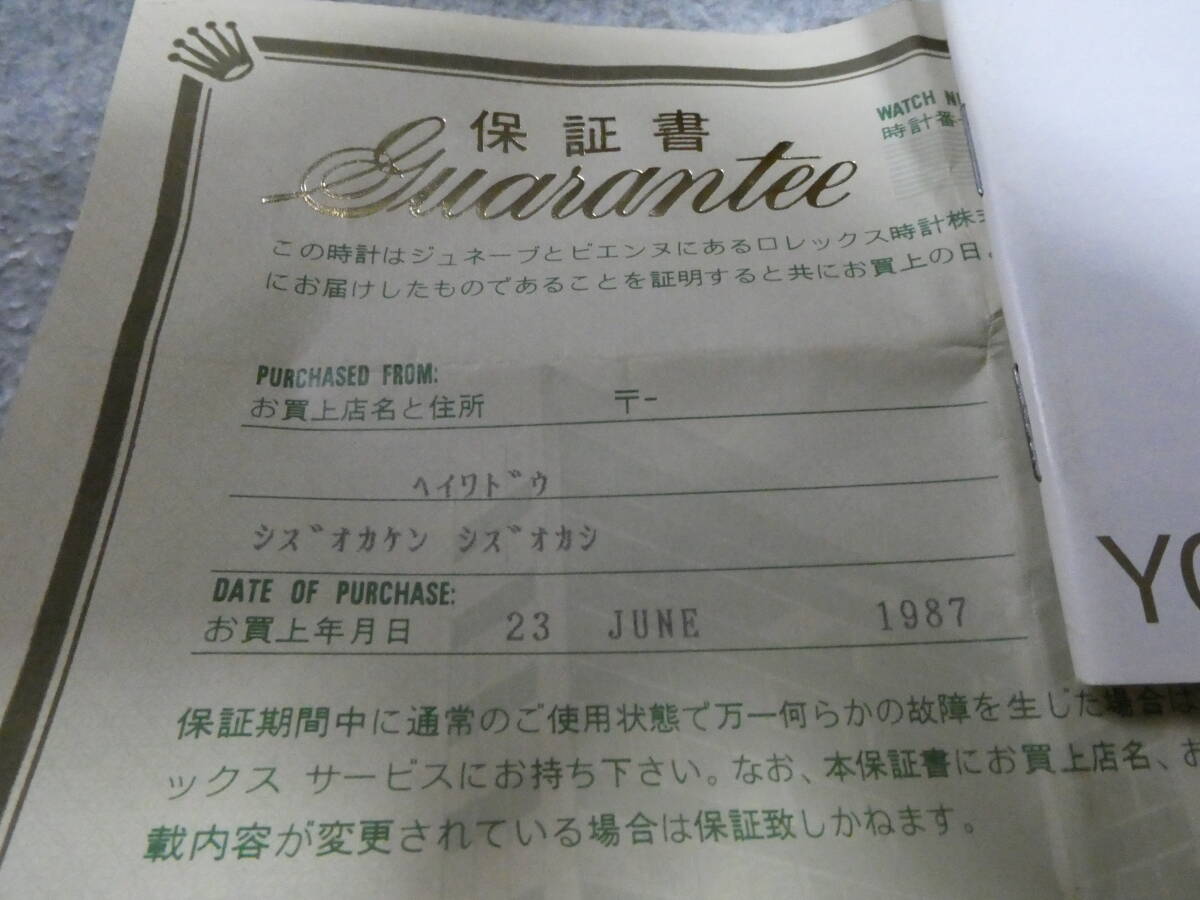 保証書
Guarantee
WATCH
時計番
この時計はジュネーブとビエンヌにあるロレックス時計株
にお届けしたものであることを証明すると共にお買上の日
PURCHASED FROM:
お買上店名と住所 〒-
ヘイワドウ
シズオカケン シズオカシ
DATE OF PURCHASE:
お買上年月日 23 JUNE 1987
保証期間中に通常のご使用状態で万一何らかの故障を生じた場合は
ックス サービスにお持ち下さい。なお、本保証書にお買上店名、お
載内容が変更されている場合は保証致しかねます。